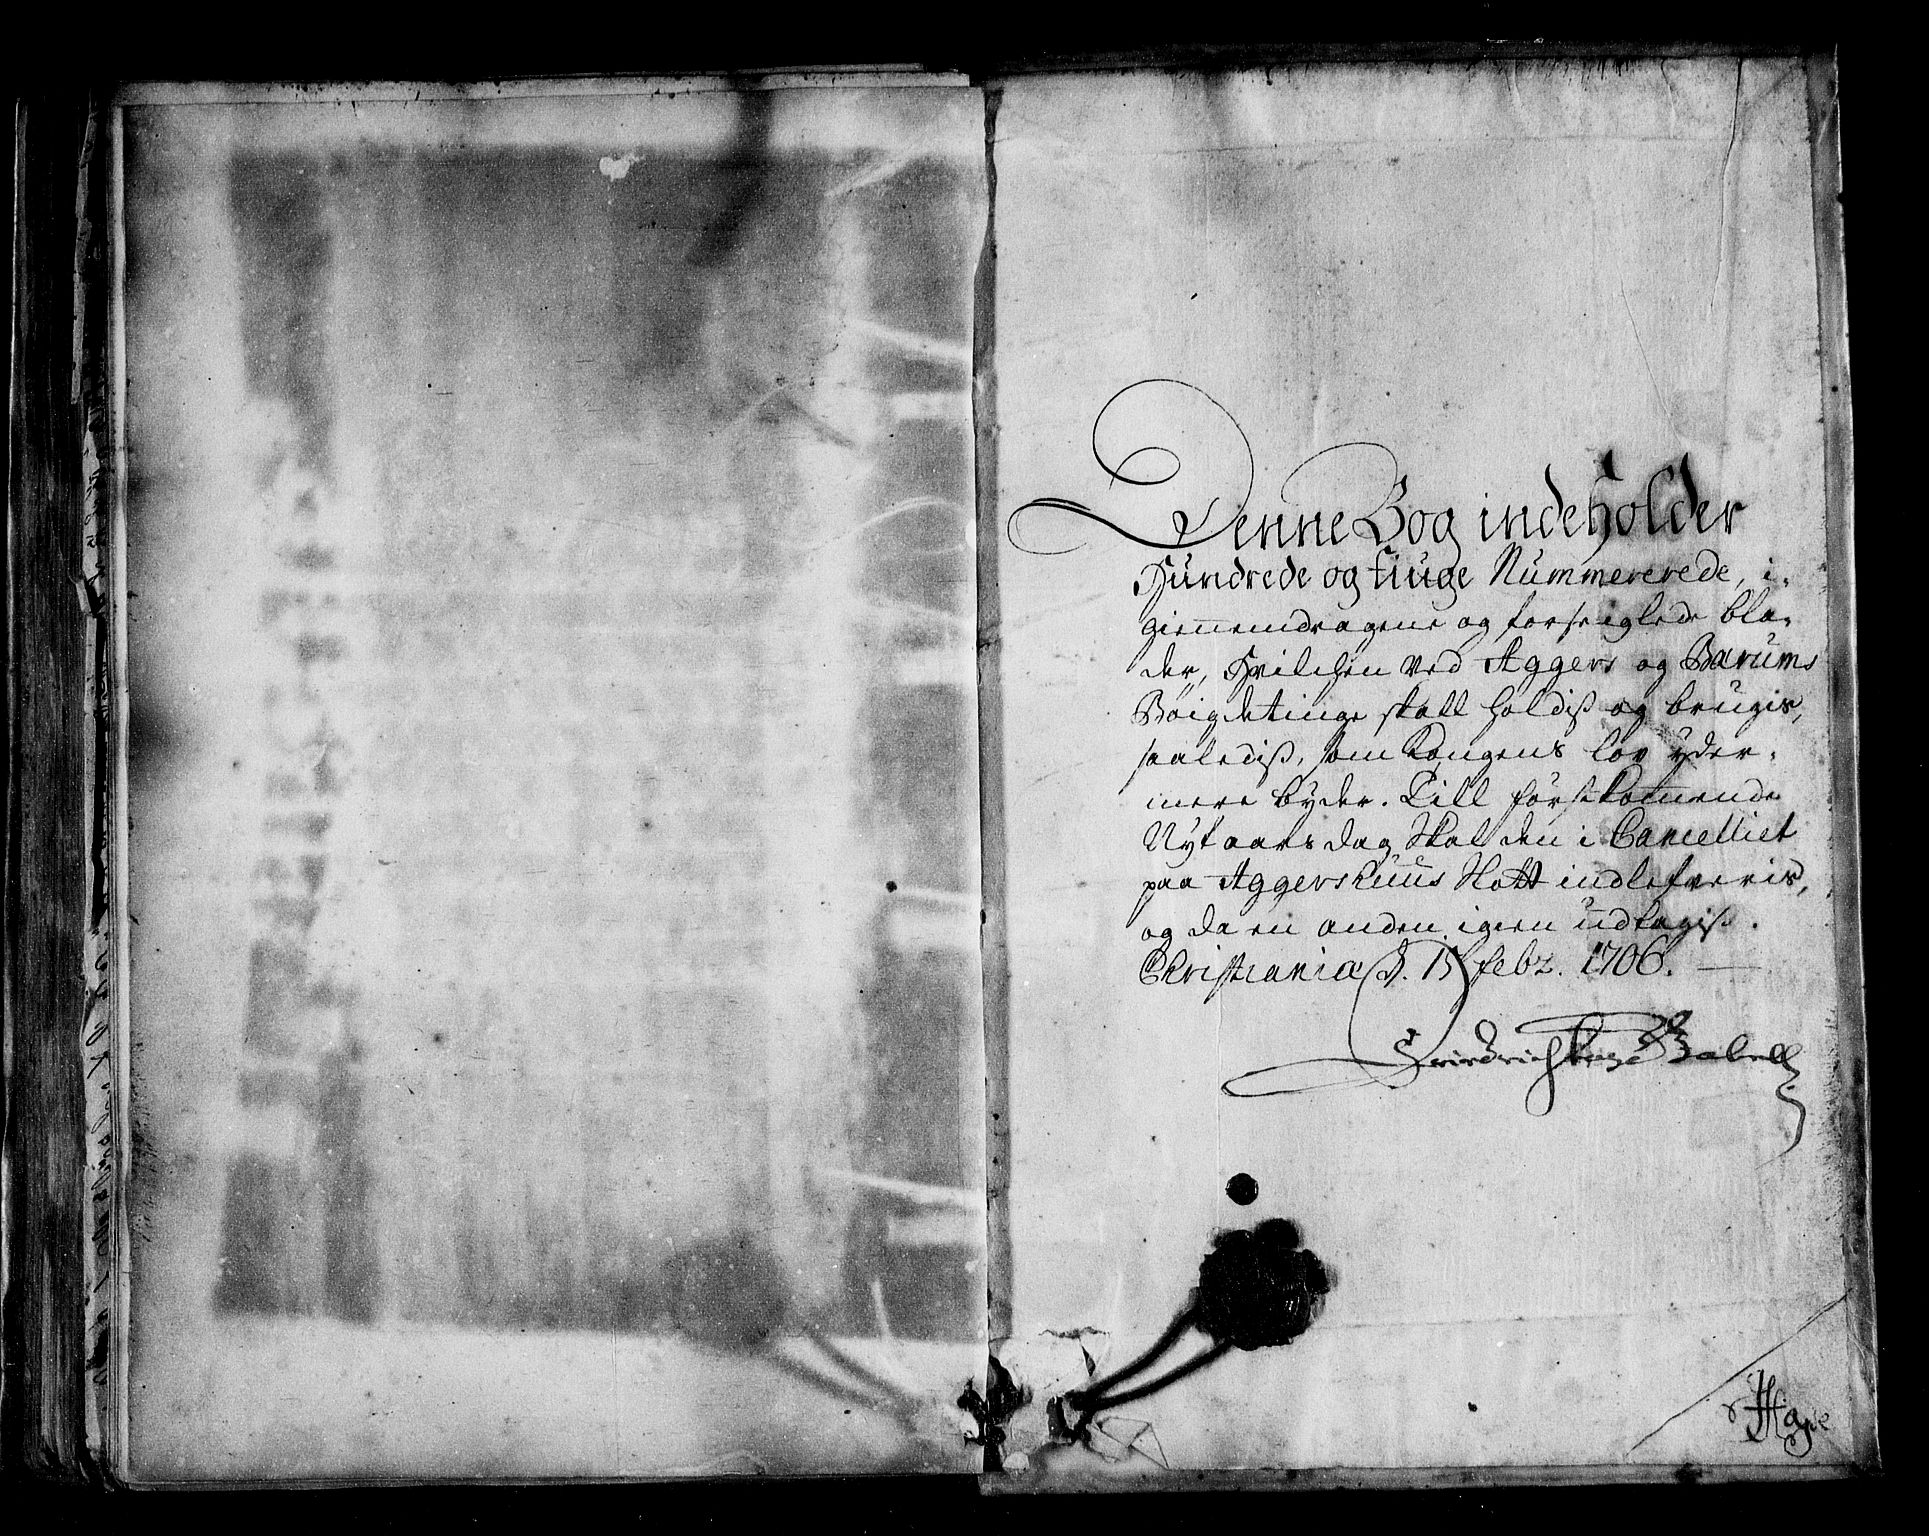 Denne Bog indeholder
Hundrede og tiuge Nummererede, i-
giennemdragene og forseiglede bla-
der, Hvilchen ved Aggers og Bærums
Bøigdetinge skall holdiß og brugis,
saalediß, som Kongens lov yder-
mere byder. Till førstkomende
Nyt aars dag Skal den i Cancelliet
paa AggersHuus Slott indlefveris,
og da en anden igien udtagiß.
Christiania d. 15 febr. 1706.
Friedrich Gabell